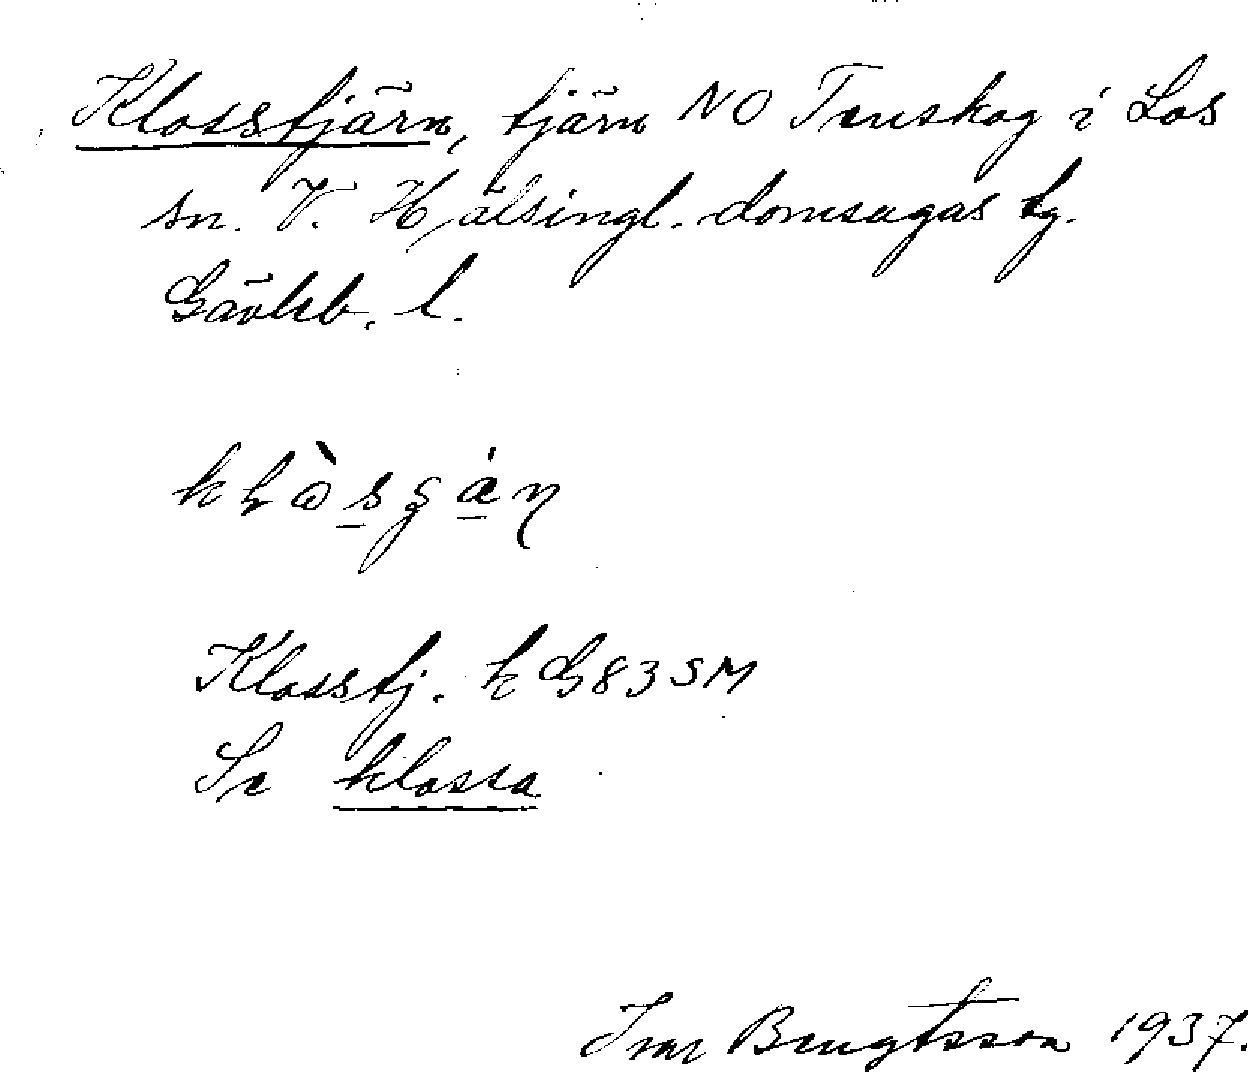 Klosstjärn, tjärn NO Tenskog i Los
sn. V. Hälsingl. domsagas tg.
Gävleb. l.
Klosstj. k G83SM
Se klossa
Ivar Bengtsson 1937.